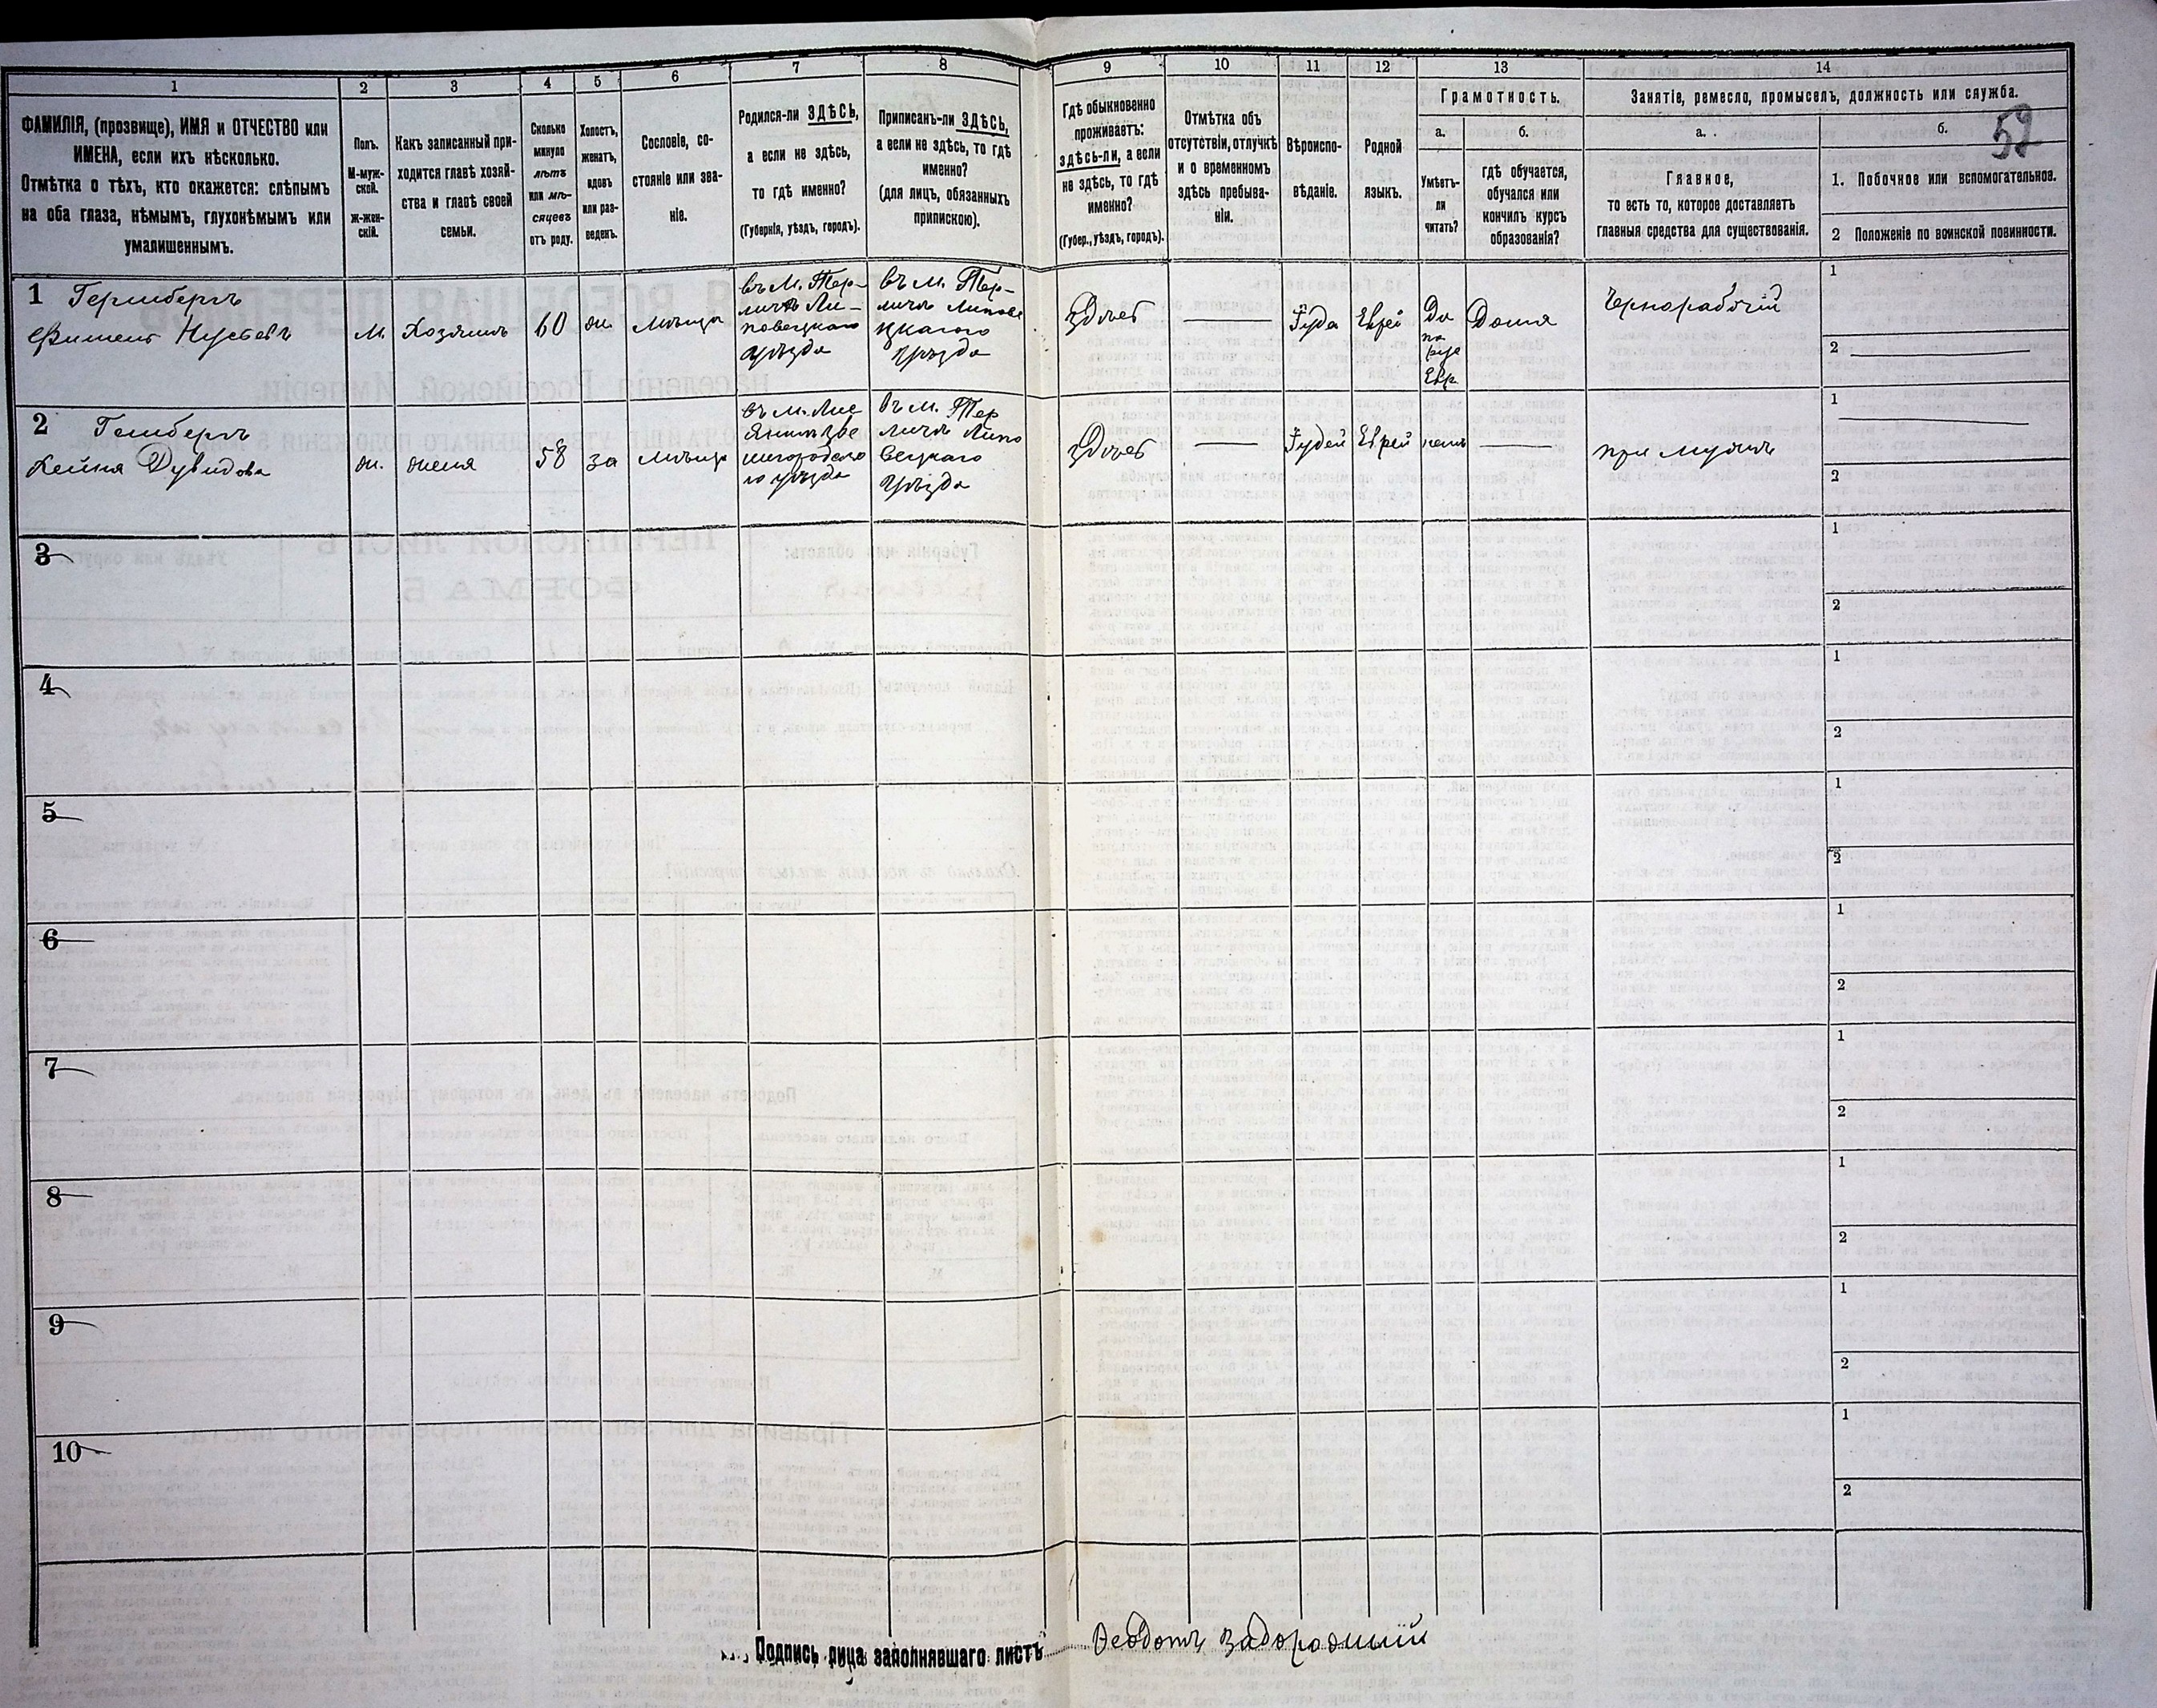 1
2
3
4
5
6
7
8
9
10
11
12
13
14
ФАМИЛІЯ, (прозвище), ИМЯ и ОТЧЕСТВО или
ИМЕНА, если ихъ нѣсколько.
Отмѣтка о тѣхъ, кто окажется: слѣпымъ
на оба глаза, нѣмымъ, глухонѣмымъ или
умалишеннымъ.
Полъ.
М-муж-
ской.
Ж-жен-
скій.
Какъ записанный при-
ходится главѣ хозяй-
ства и главѣ своей
семьи.
Сколько
минуло
лѣтъ
или мѣ-
сяцевъ
отъ роду.
Холостъ,
женатъ,
вдовъ
или раз-
веденъ.
Сословіе, со-
стояніе или зва-
ніе.
Родился-ли ЗДѢСЬ,
а если не здѣсь,
то гдѣ именно?
(Губернія, уѣздъ, городъ).
Приписанъ-ли ЗДѢСЬ,
а если не здѣсь, то гдѣ
именно?
(для лицъ, обязанныхъ
припискою).
Гдѣ обыкновенно
проживаетъ:
здѣсь-ли, а если
не здѣсь, то гдѣ
именно?
(Губер., уѣздъ, городъ).
Отмѣтка объ
отсутствіи, отлучкѣ
и о временномъ
здѣсь пребыва-
ніи.
Вѣроиспо-
вѣданіе.
Родной
языкъ.
Грамотность.
а.
б.
Умѣетъ-
ли
читать?
гдѣ обучается,
обучался или
кончилъ курсъ
образованія?
Занятіе, ремесло, промыселъ, должность или служба.
а.
б.
52
Главное,
то есть то, которое доставляетъ
главныя средства для существованія.
1. Побочное или вспомогательное.
2 Положеніе по воинской повинности.
1 Гершбергъ
М.
Хозяинъ
60
ж.
въ М. Тер-
личкѣ Ли-
повецкаго
уѣзда
въ М. Тер-
личкѣ Липове
цкаго
уѣзда
Здѣсь
Іуде
Еврей
Да
по
Евр
Дома
Чернорабочій
1
2
2
Хейня Дувидова
ж.
жена
58
за
въ м.
въ м. Тер
личкѣ Липо
вецкаго
уѣзда
Здѣсь
Іудей
Еврей
нетъ
при мужѣ
1
2
3
1
2
4
1
2
5
1
2
6
1
2
7
1
2
8
1
2
9
1
2
10
1
2
Подпись лица заполнявшаго листъ
Ѳеодотъ Задорожный